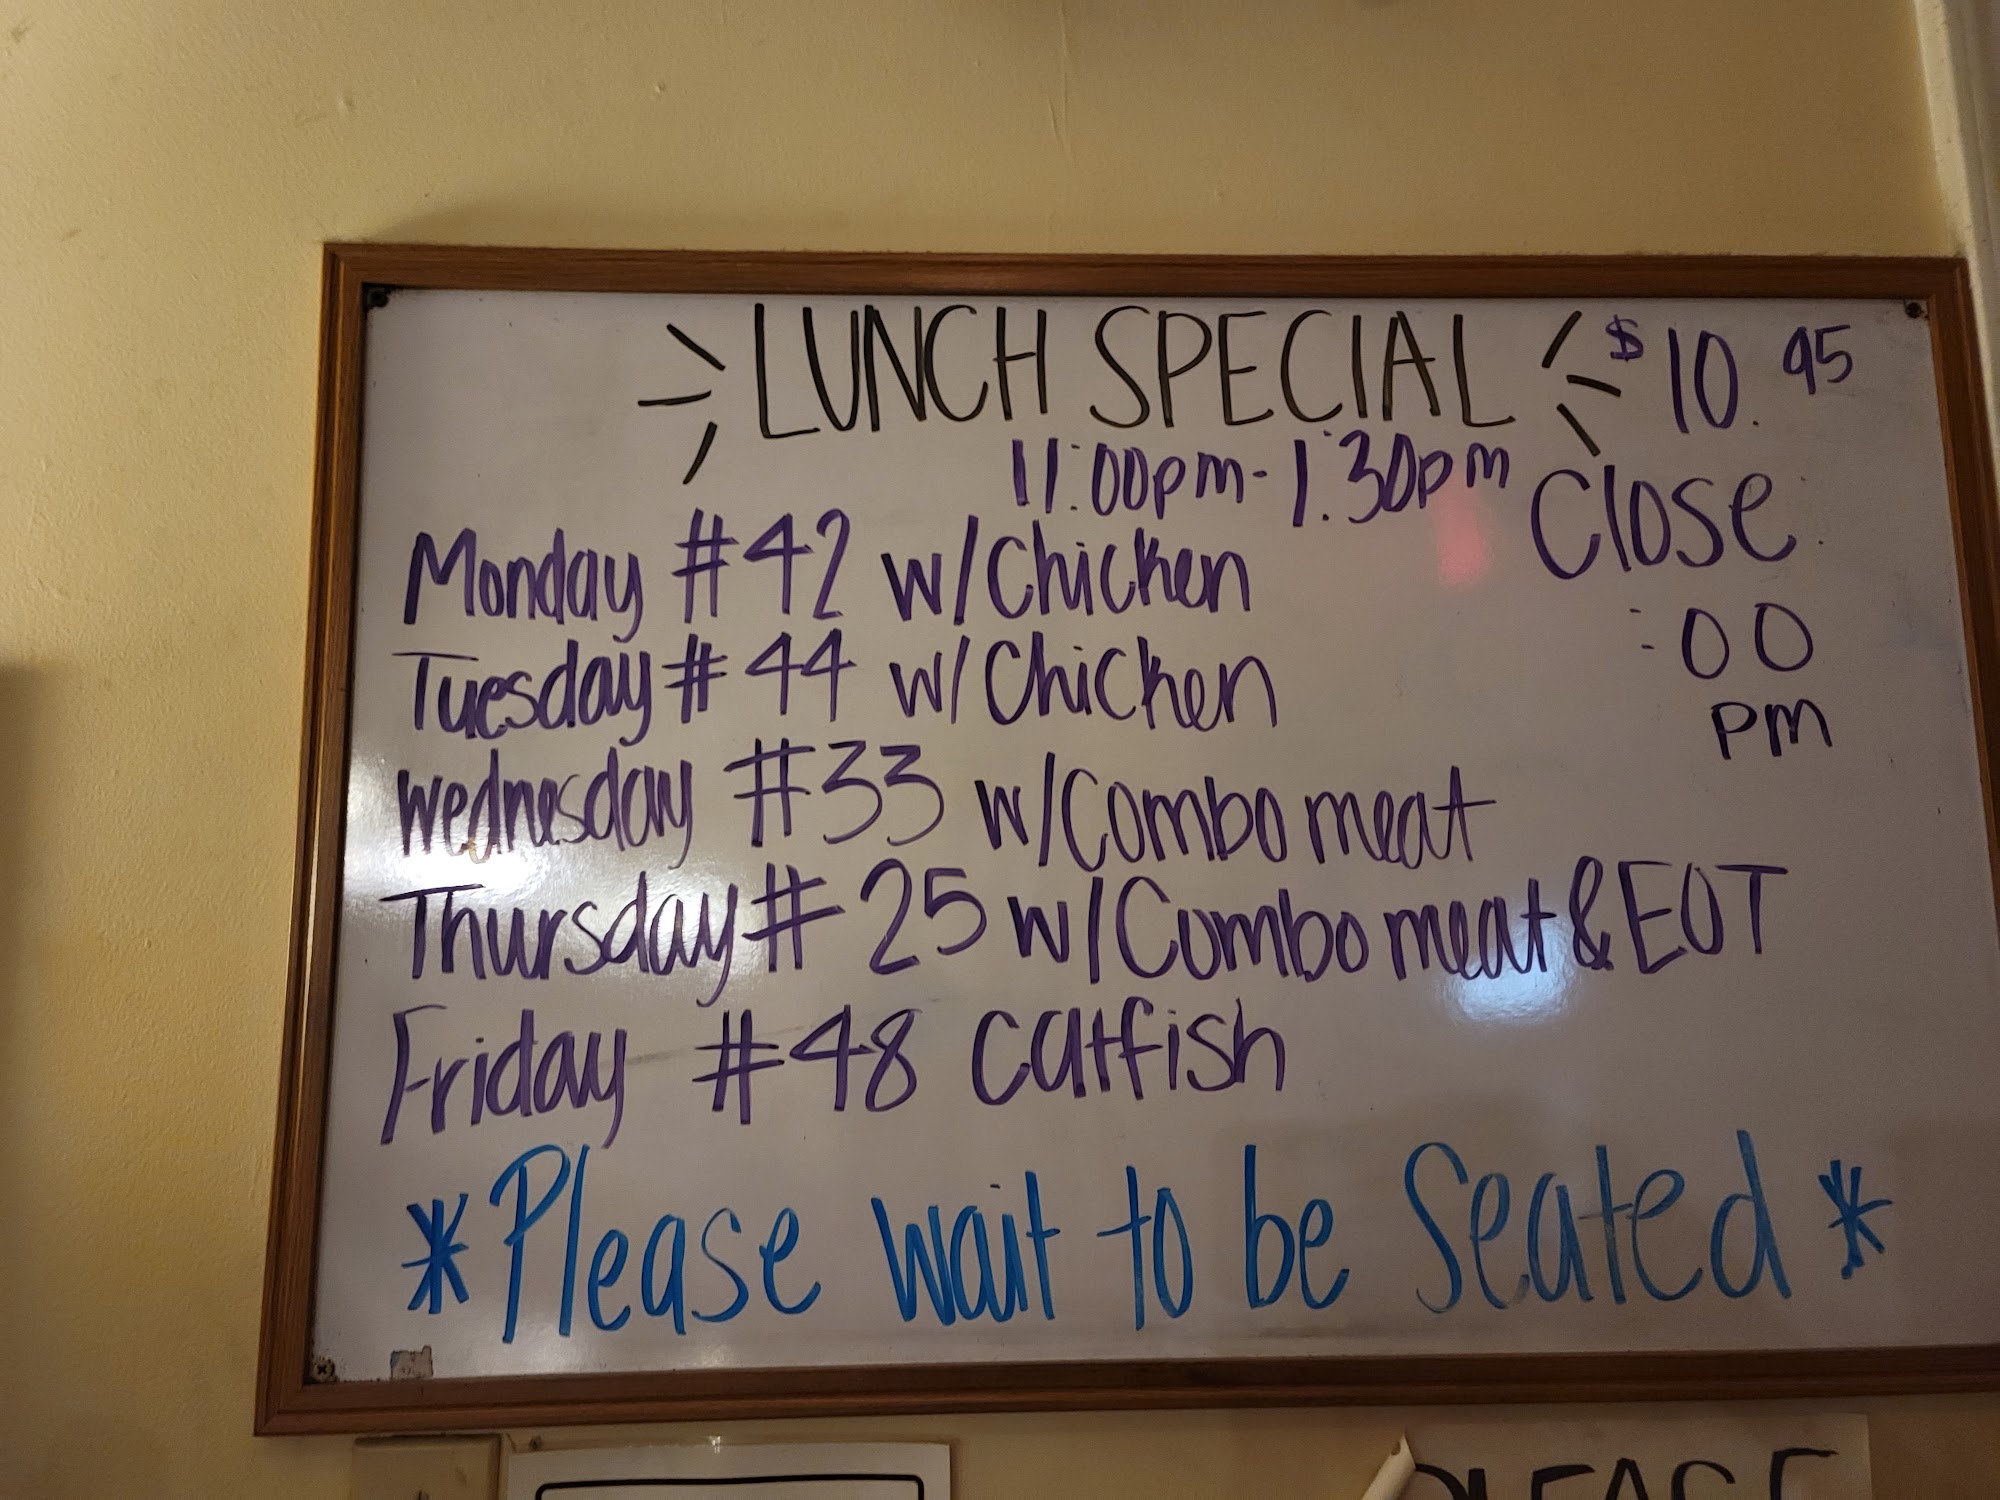 LUNCH SPECIAL $10.95
11:00pm-1:30pm
Close:
:00
pm
Monday #42 w/Chicken
Tuesday #44 w/Chicken
Wednesday #33 w/Combo meat
Thursday #25 w/Combo meat & EOT
Friday #48 catfish
*Please wait to be Seated*
PLEASE